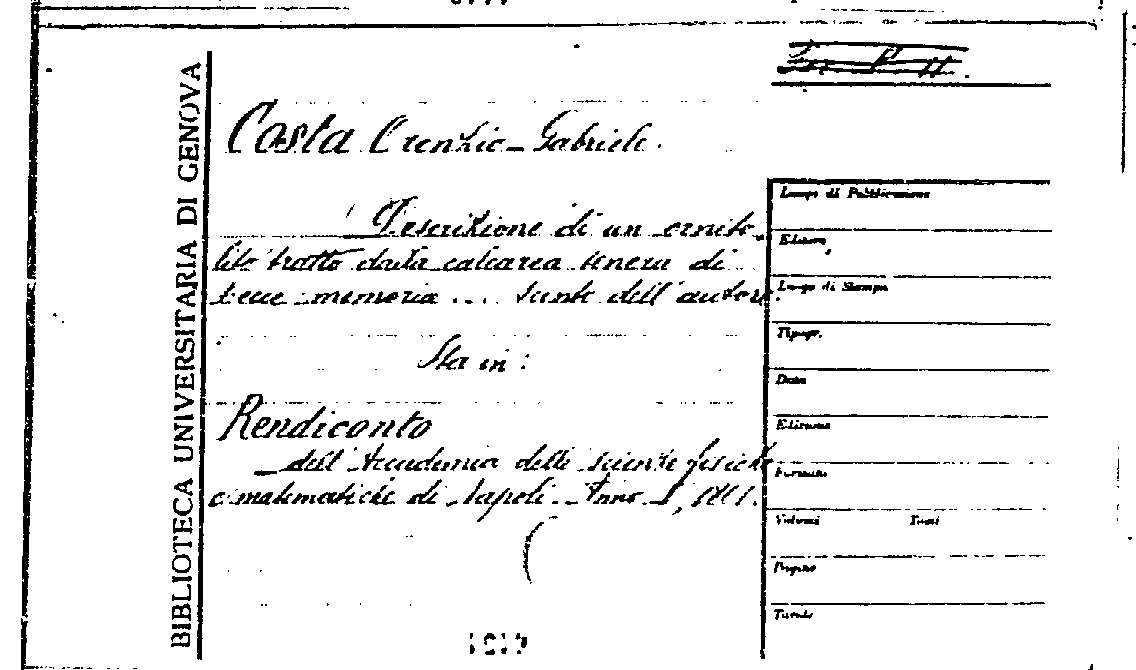 BIBLIOTECA UNIVERSITARIA DI GENOVA
Costa Oronzio-Gabriele.
Descrizione di un ornito-
lito tratto dalla calcarea tenera di
Lecce memoria ... Sunto dell'autore.
Sta in:
Rendiconto
dell'Accademia delle scienze fisiche
e matematiche di Napoli. Anno I,
Luogo di Pubblicazione
Editore
Luogo di Stampa
Tipogr.
Data
Edizione
Formato
Volumi Tomi
Pagine
Titolo